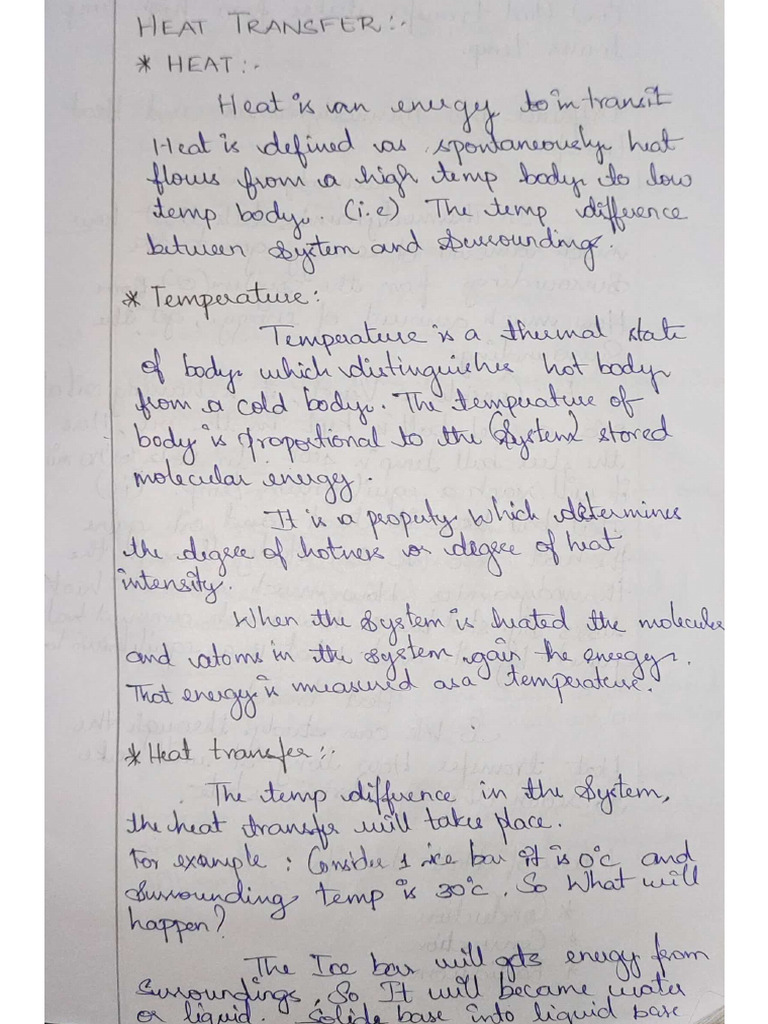 HEAT TRANSFER:-
* HEAT:-
Heat is an energy to in transit
Heat is defined as spontaneously heat
flows from a high temp body to low
temp body. (i.e) The temp difference
between System and Surrounding.
* Temperature:
Temperature is a thermal state
of body which distinguishes hot body
from a cold body. The temperature of
body is proportional to the (System) stored
molecular energy.
It is a property which determines
the degree of hotness or degree of heat
intensity.
When the System is heated the molecules
and atoms in the system gain the energy.
That energy is measured as a temperature.
* Heat transfer:-
The temp difference in the System,
the heat transfer will takes place.
For example: Consider 1 ice bar it is 0°c and
Surrounding temp is 30°c. So What will
happen?
The Ice bar will gets energy from
Surroundings, So It will became water
or liquid. Solide base into liquid base